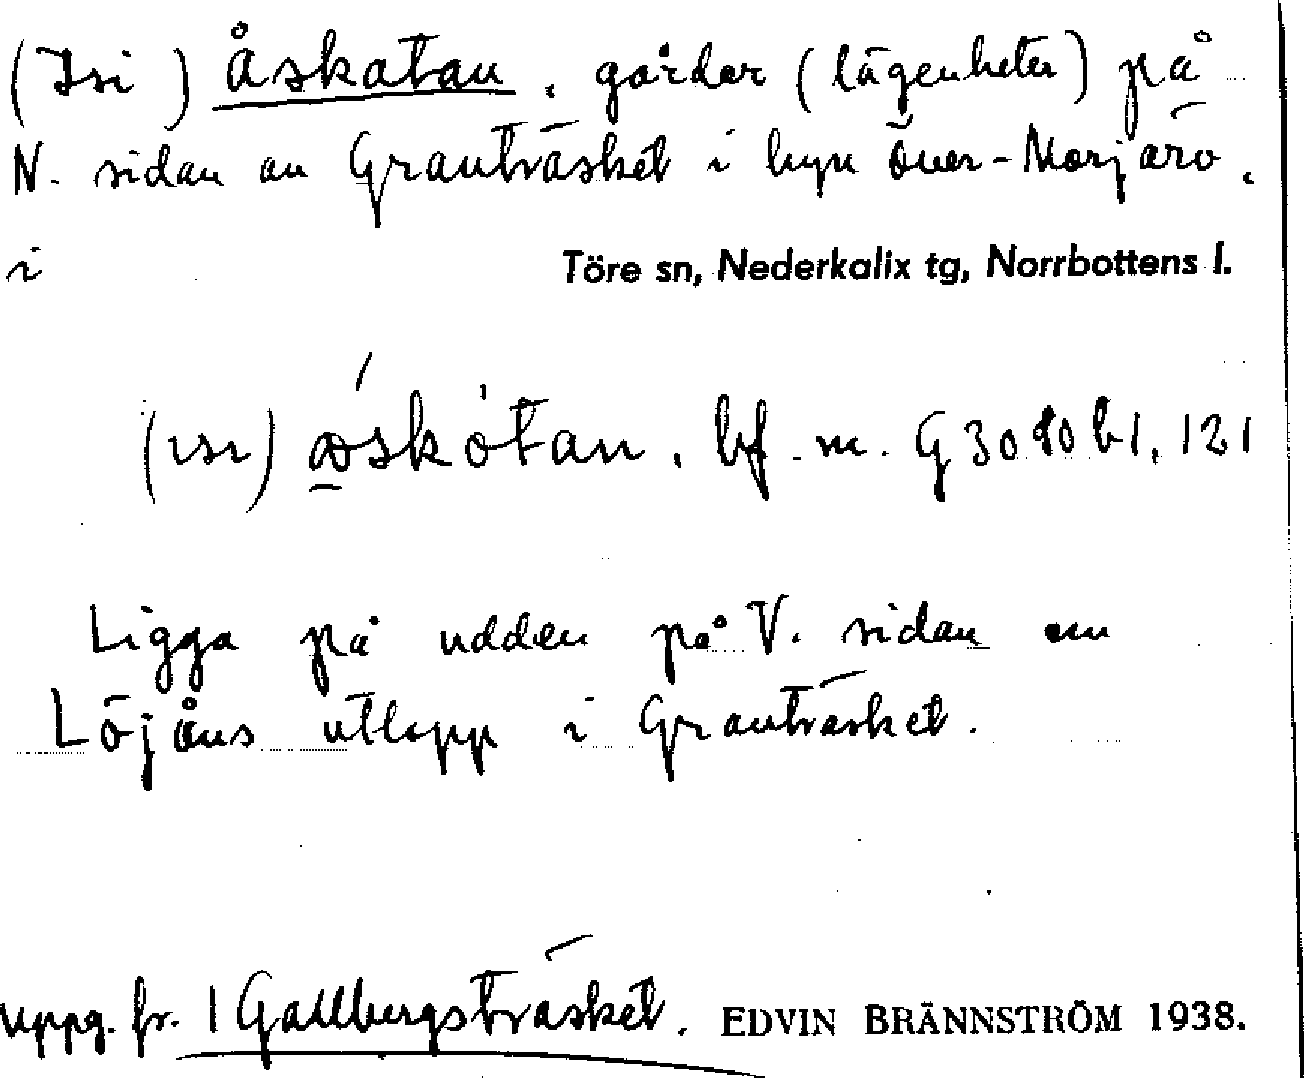 (Isi) Åskatan, gårdar (lägenheter) på
N. sidan av Granträsket i byn Över-Morjärv,
i Töre sn, Nederkalix tg, Norrbottens l.
bf. m. G 3080 b1, 121
Ligga på udden på V. sidan av
Löjåns utlopp i Granträsket.
uppg. fr. 1 Gallbergsträsket. EDVIN BRÄNNSTRÖM 1938.